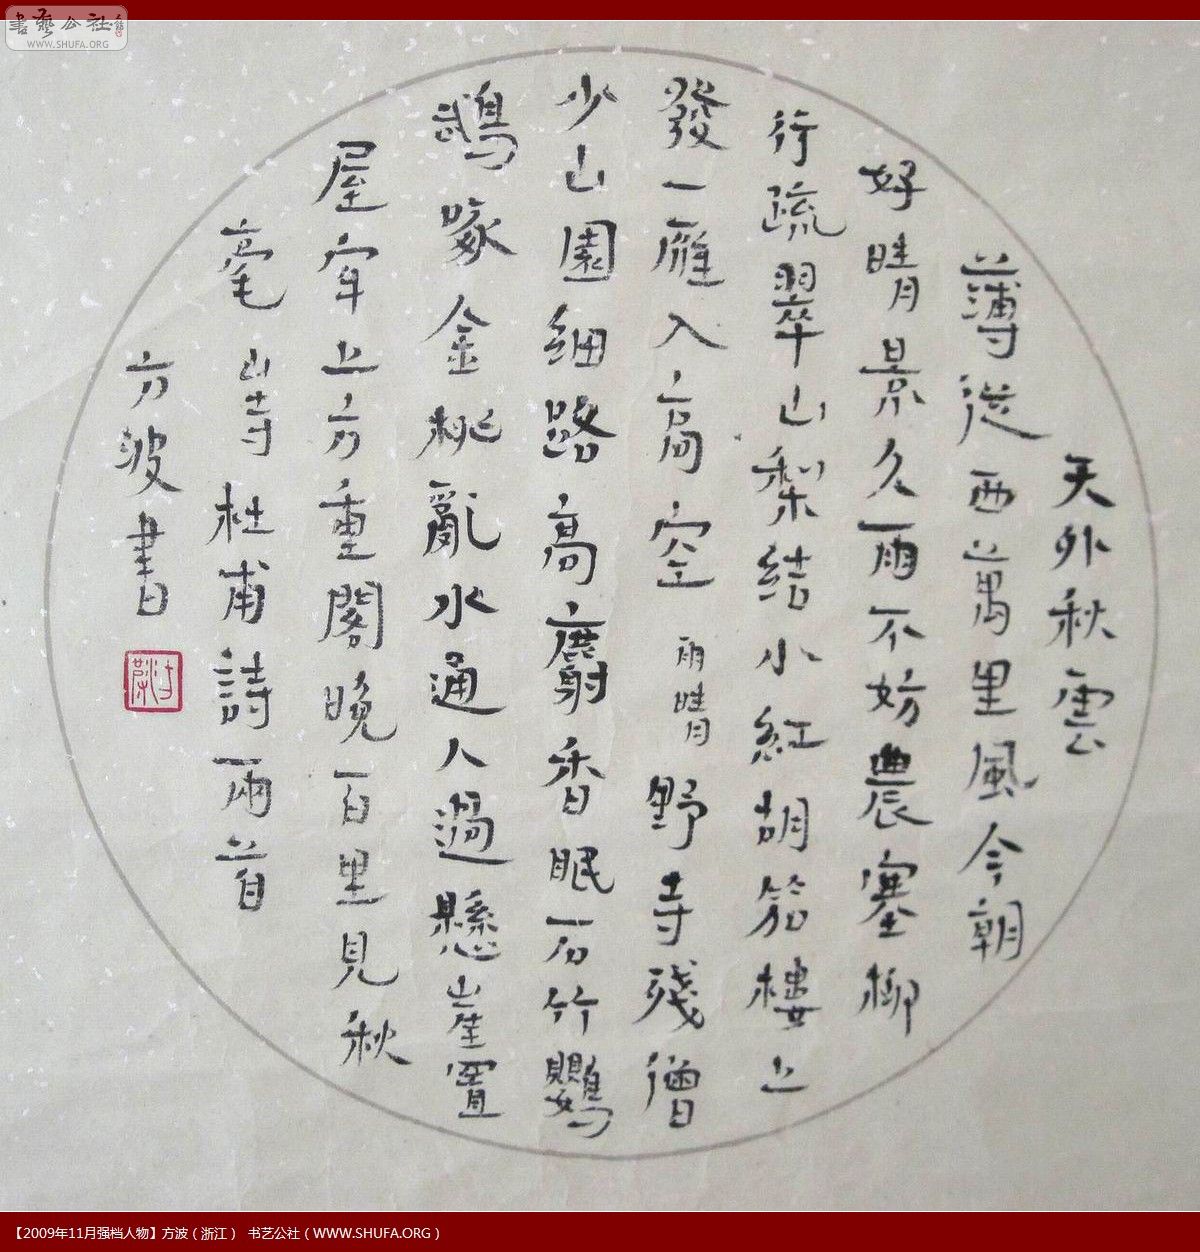 書藝公社
WWW.SHUFA.ORG
天外秋雲
薄從西萬里風今朝
好晴景久雨不妨農塞柳
行疏翠山梨結小紅胡笳樓上
發一雁入高空 雨晴 野寺殘僧
少山園細路高麝香眠石竹鸚
鵡啄金桃亂水通人過懸崖置
屋牢上方重閣晚百里見秋
毫 山寺 杜甫詩兩首
方波書
【2009年11月强档人物】方波（浙江） 书艺公社（WWW.SHUFA.ORG）